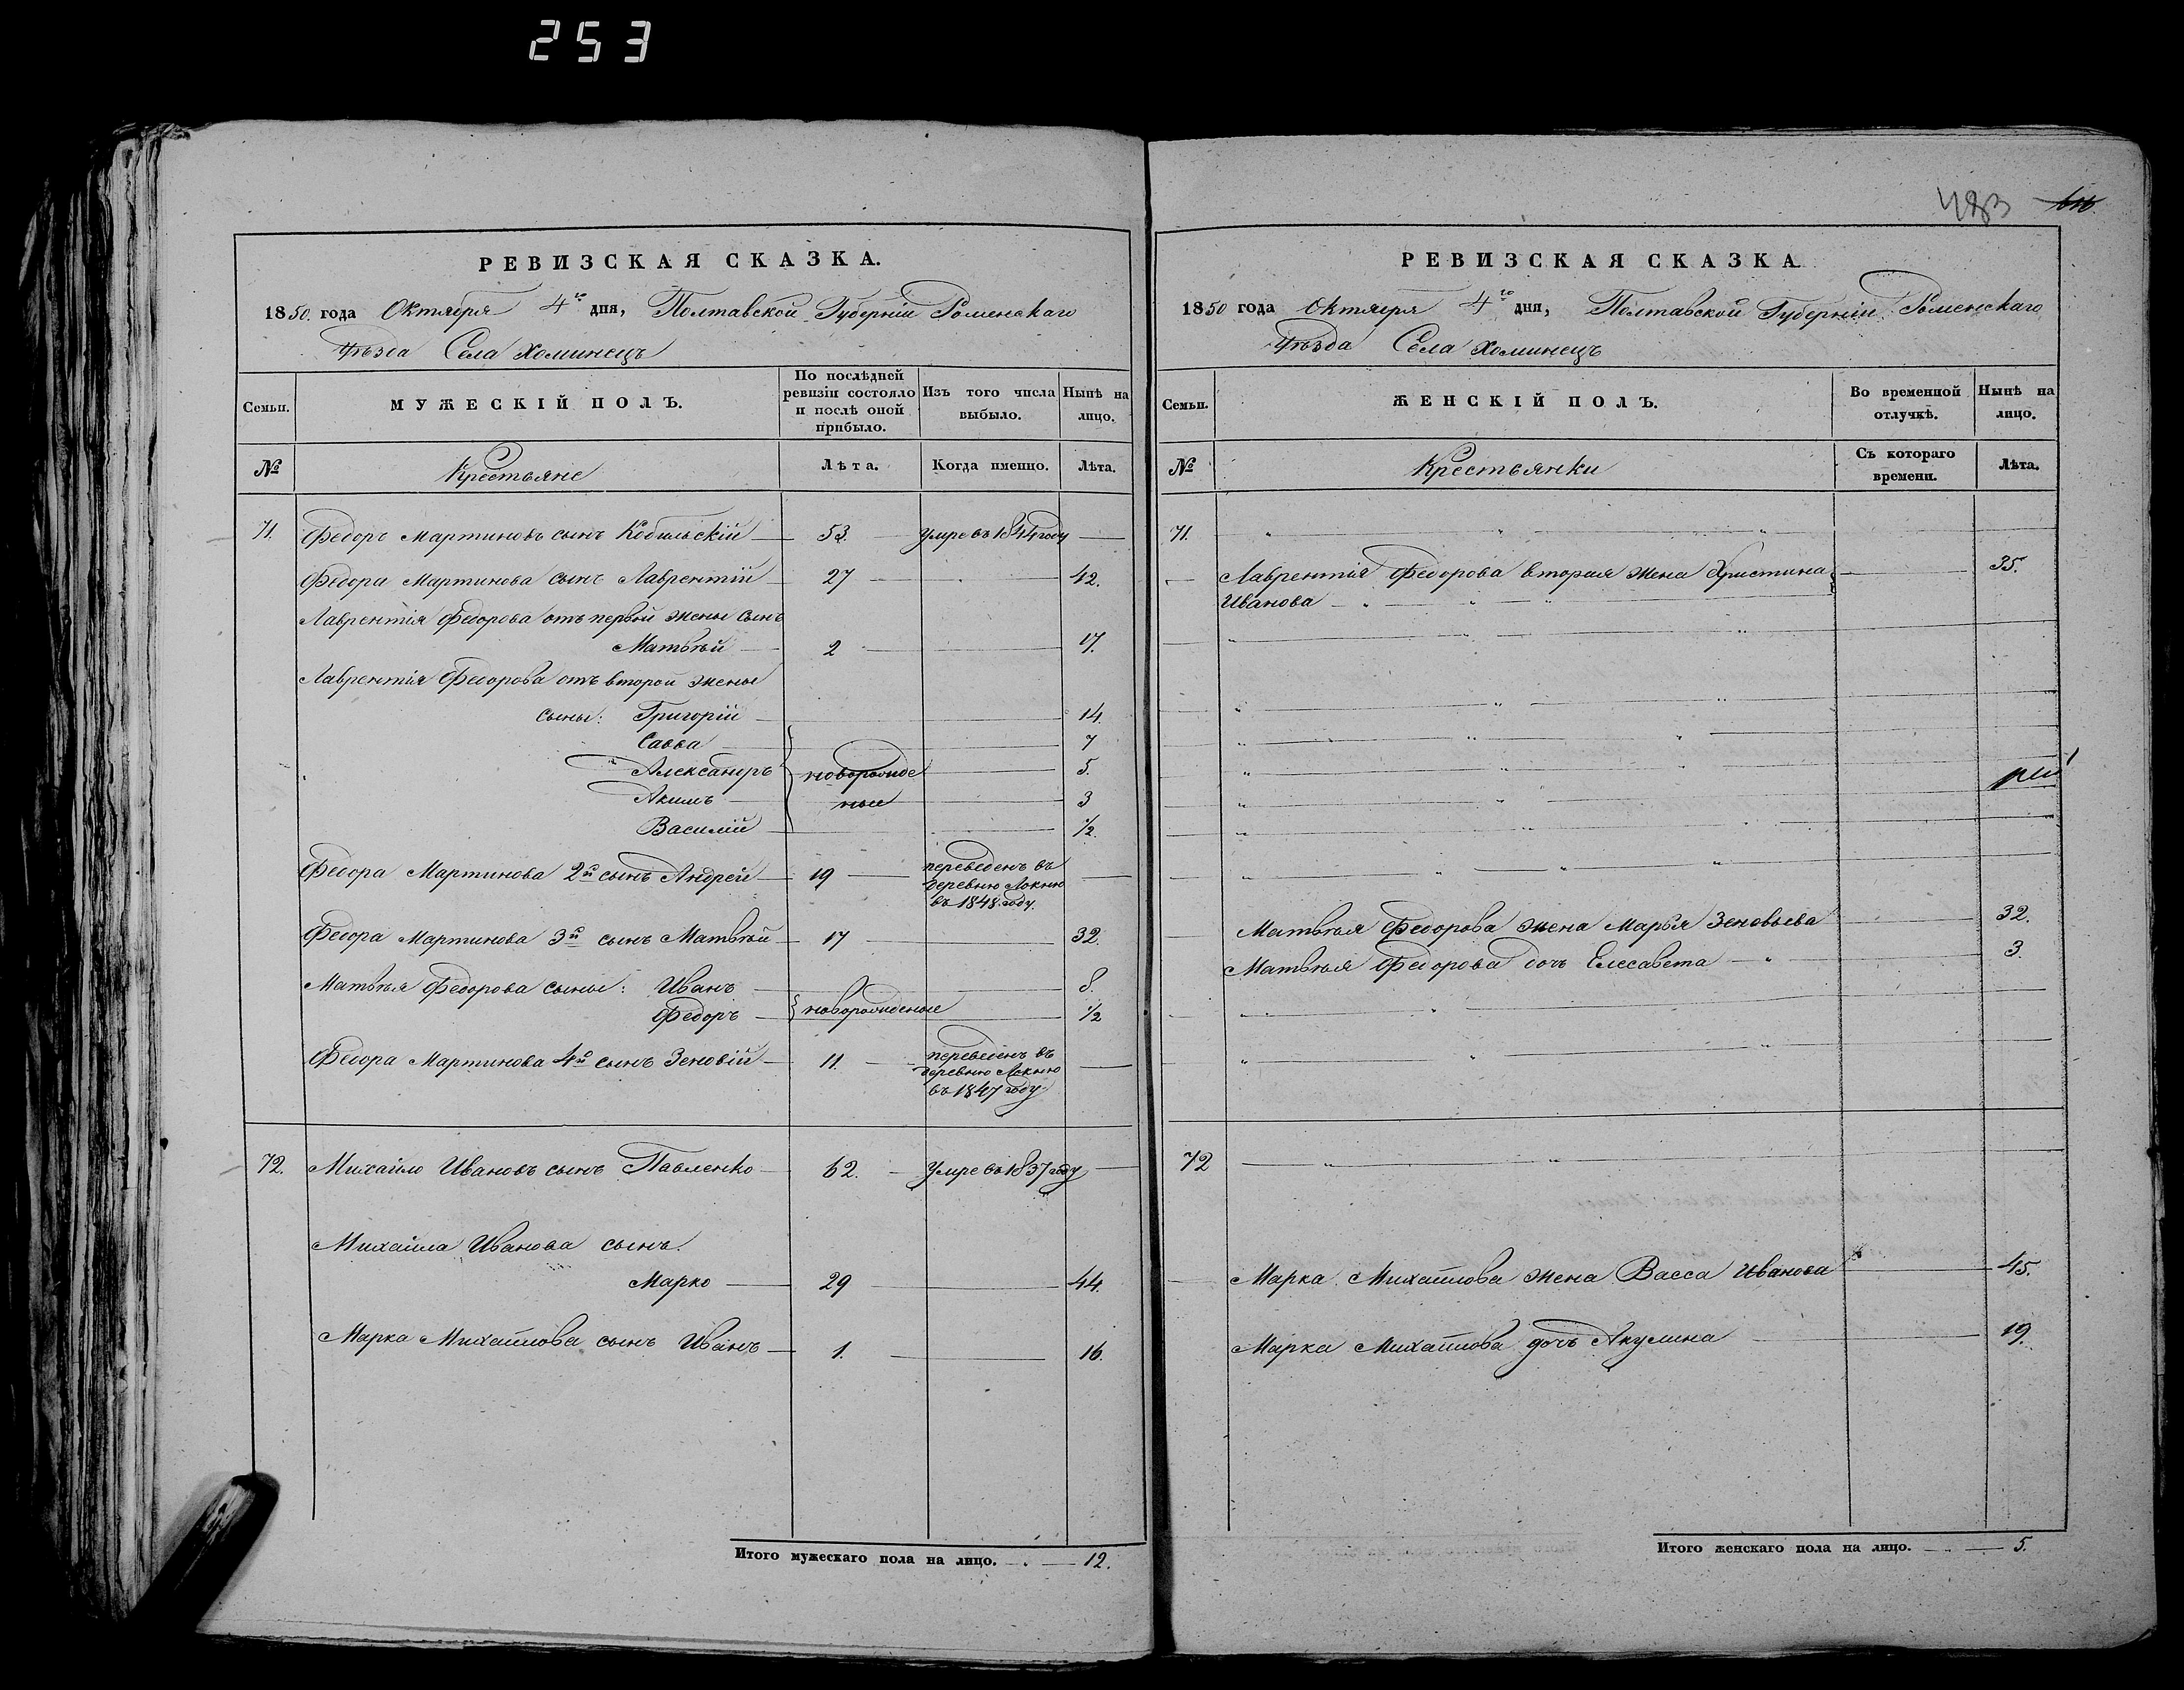 253
РЕВИЗСКАЯ СКАЗКА.
1850. года Октября 4го дня, Полтавской Губерніи Роменскаго
Уѣзда Села Хоминецъ
Семьи.
МУЖЕСКІЙ ПОЛЪ.
По послѣдней ревизіи состояло и послѣ оной прибыло.
Изъ того числа выбыло.
Нынѣ на лицо.
№
Крестьяне
Лѣта.
Когда именно.
Лѣта.
71. Федоръ Мартиновъ сынъ Кобильскій 53. Умре въ 1844 году
Федора Мартинова сынъ Лаврентій 27 42.
Лаврентія Федорова отъ первой жены сынъ
Матвѣй 2 17.
Лаврентія Федорова отъ второй жены
сыны: Григорій 14.
Савва 7
Александръ новорожде 5.
Акимъ ные 3
Василій 1/2.
Федора Мартинова 2й сынъ Андрей 19 переведенъ въ
деревню Локню
въ 1848 году.
Федора Мартинова 3й сынъ Матвѣй 17 32.
Матвѣя Федорова сыны: Иванъ 8.
Федоръ новорожденые 1/2
Федора Мартинова 4й сынъ Зеновій 11. переведенъ въ
деревню Локню
въ 1847 году
72. Михайло Ивановъ сынъ Павленко 62. Умре въ 1837 году
Михайла Иванова сынъ.
Марко 29 44.
Марка Михайлова сынъ Иванъ 1. 16.
Итого мужескаго пола на лицо. 12.
483
РЕВИЗСКАЯ СКАЗКА
1850 года Октября 4го дня, Полтавской Губерніи Роменскаго
Уѣзда Села Хоминецъ
Семьи.
ЖЕНСКІЙ ПОЛЪ.
Во временной отлучкѣ.
Нынѣ на лицо.
№
Крестьянки
Съ котораго времени.
Лѣта.
71.
Лаврентія Федорова вторая жена Христина 35.
Иванова
Матвѣя Федорова жена Марья Зеновьева 32.
Матвѣя Федорова дочь Елесавета 3.
72
Марка Михайлова жена Васса Иванова 45.
Марка Михайлова дочь Акулина 19.
Итого женскаго пола на лицо. 5.